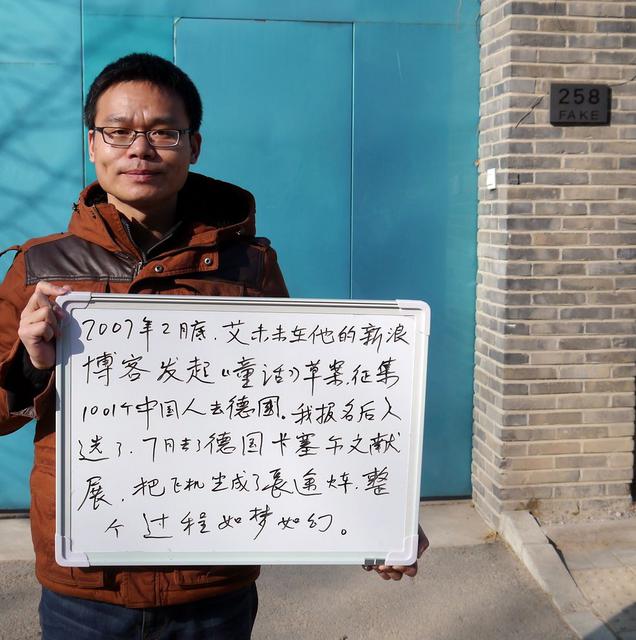 2007年2月底，艾未未在他的新浪
博客发起《童话》草案，征集
1001个中国人去德國。我报名后入
选了，7月去了德国卡塞尔文献
展，把飞机坐成了長途車，整
个过程如梦如幻。
258
FAKE